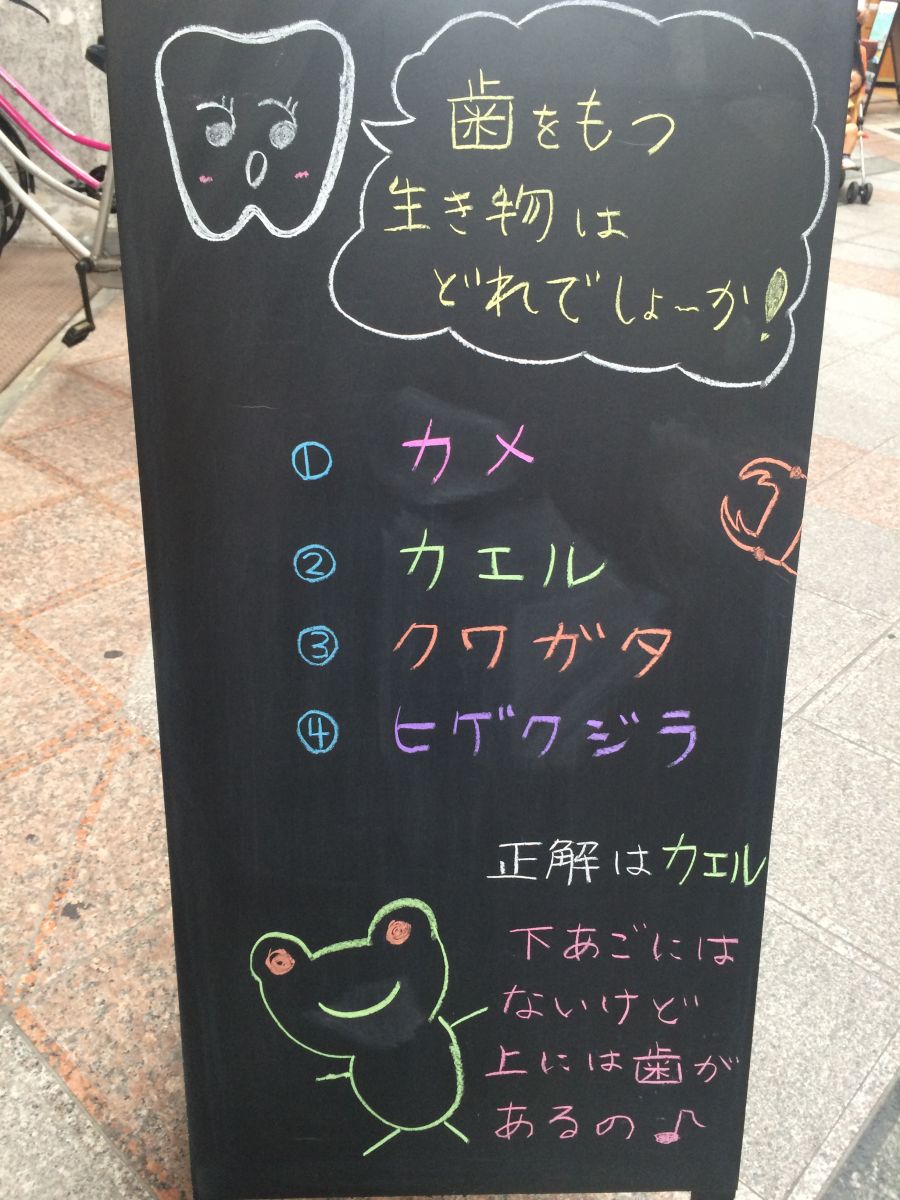 歯をもつ
生き物は
どれでしょ〜か!
① カメ
② カエル
③ クワガタ
④ ヒゲクジラ
正解はカエル
下あごには
ないけど
上には歯が
あるの♪